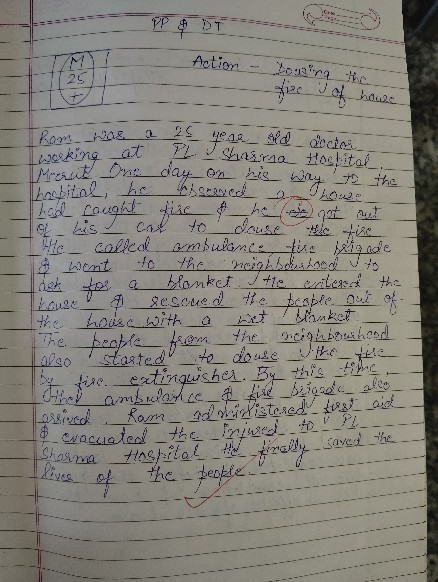 PP & DT
M
25
+
Action - Dousing the
fire of house
Ram was a 25 year old doctor
working at PL Sharma Hospital,
Meerut. One day on his way to the
hospital, he observed a house
had caught fire & he got out
of his car to douse the fire
He called ambulance fire brigade
& went to the neighbourhood to
ask for a blanket. He entered the
house & rescued the people out of
the house with a wet blanket.
The people from the neighbourhood
also started to douse the fire
by fire extinguisher. By this time,
the ambulance & fire brigade also
arrived. Ram administered first aid
& evacuated the injured to PL
Sharma Hospital. He finally saved the
lives of the people.